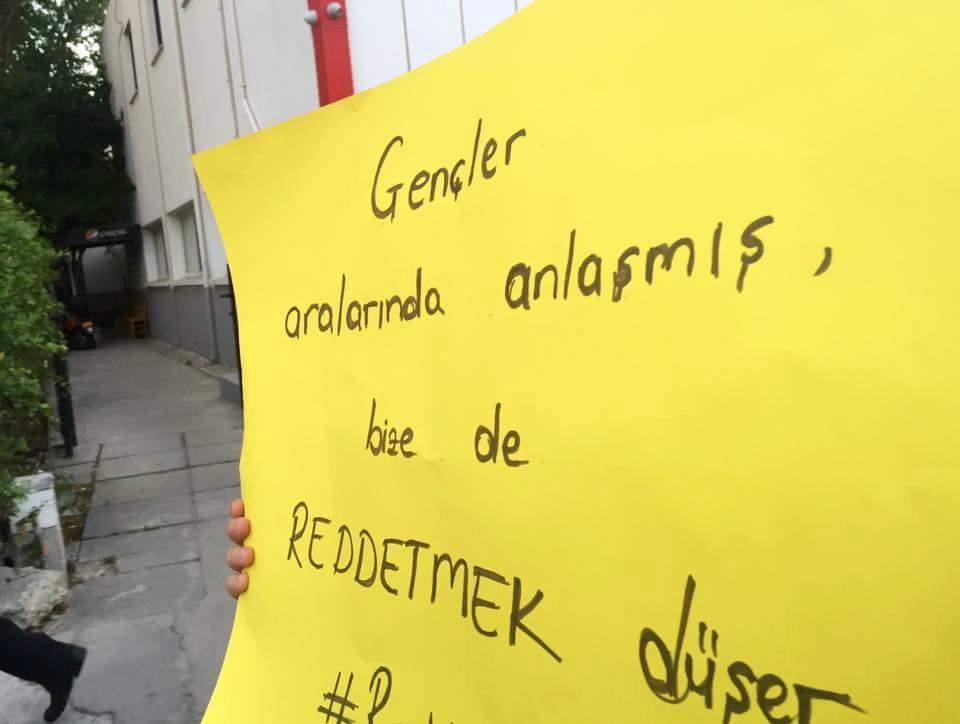 Gençler
aralarında anlaşmış,
bize de
REDDETMEK düşer